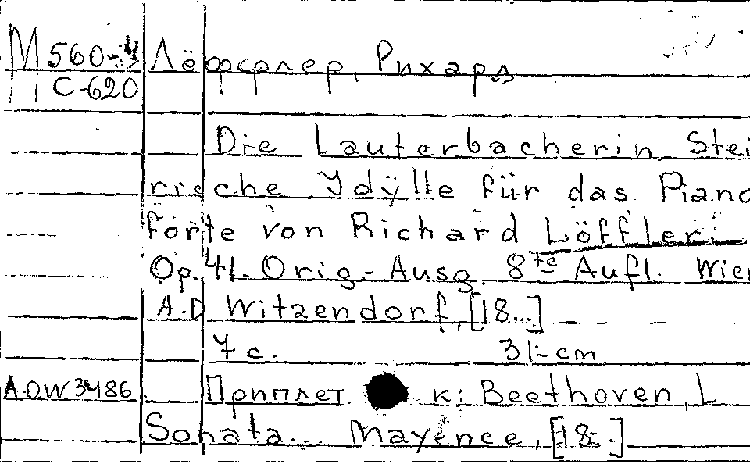 М 560-4 Лёффлер, Рихард
С-620
Die Lauterbacherin. Stei
rische Idÿlle für das Piano
forte von Richard Löffler.
Op. 41. Orig.-Ausg. 8te Aufl. Wien
A.D Witzendorf, [18...]
7 с. 31 cm
A.D.W 3486 Приплет к: Beethoven, L
Sonata... Mayence, [18..]